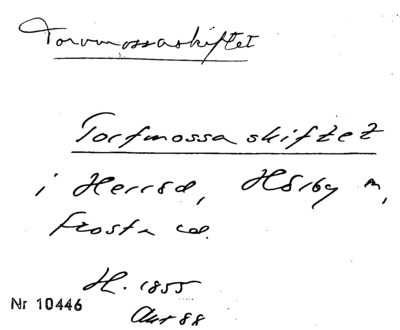 Torvmossaskiftet
Torfmossaskiftet
i Herrsd, Hörby sn,
Frosta hd.
H. 1855
Nr 10446
Akt 88